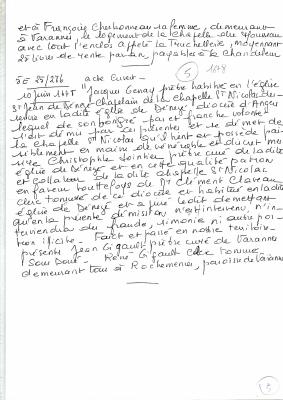 et à François Charbonneau sa femme, demeurant
à Varannes, le logement de la chapelle du
avec tout l'enclos appelé la Truchellerie, moyennant
25 livres de rente par an, payables à la Chandeleur
5
5E 25/276 acte Cuvit -
10 juin Jacques Genay prêtre habitué en l'église
St Jean de Denezé chapelain de la chapelle St Nicolas
en ladite église de Denezé diocèse d'Angers
lequel de son bon gré pur et franche volonté
s'est démis par ces présentes et se démet de
la chapelle St Nicolas qu'il tient et possède pai-
siblement en mains de vénérable et discret mes
sire Christophe prêtre curé de ladite
église de Denezé et en cette qualité patron
et collateur de ladite chapelle St Nicolas
en faveur toutefois de Mr Clément Chauveau
clerc tonsuré de ce diocèse et habitué en ladite
église de Denezé et a juré ledit démettant
qu'en la présente démission n'est intervenu, n'in-
terviendra dol, fraude, simonie ni autre pac-
tion illicite. Fait et passé en notre
présents Jean Gigault prêtre curé de Varannes
sous Doué - René Gigault clerc tonsuré -
demeurant tous à Rochemenier, paroisse de
5